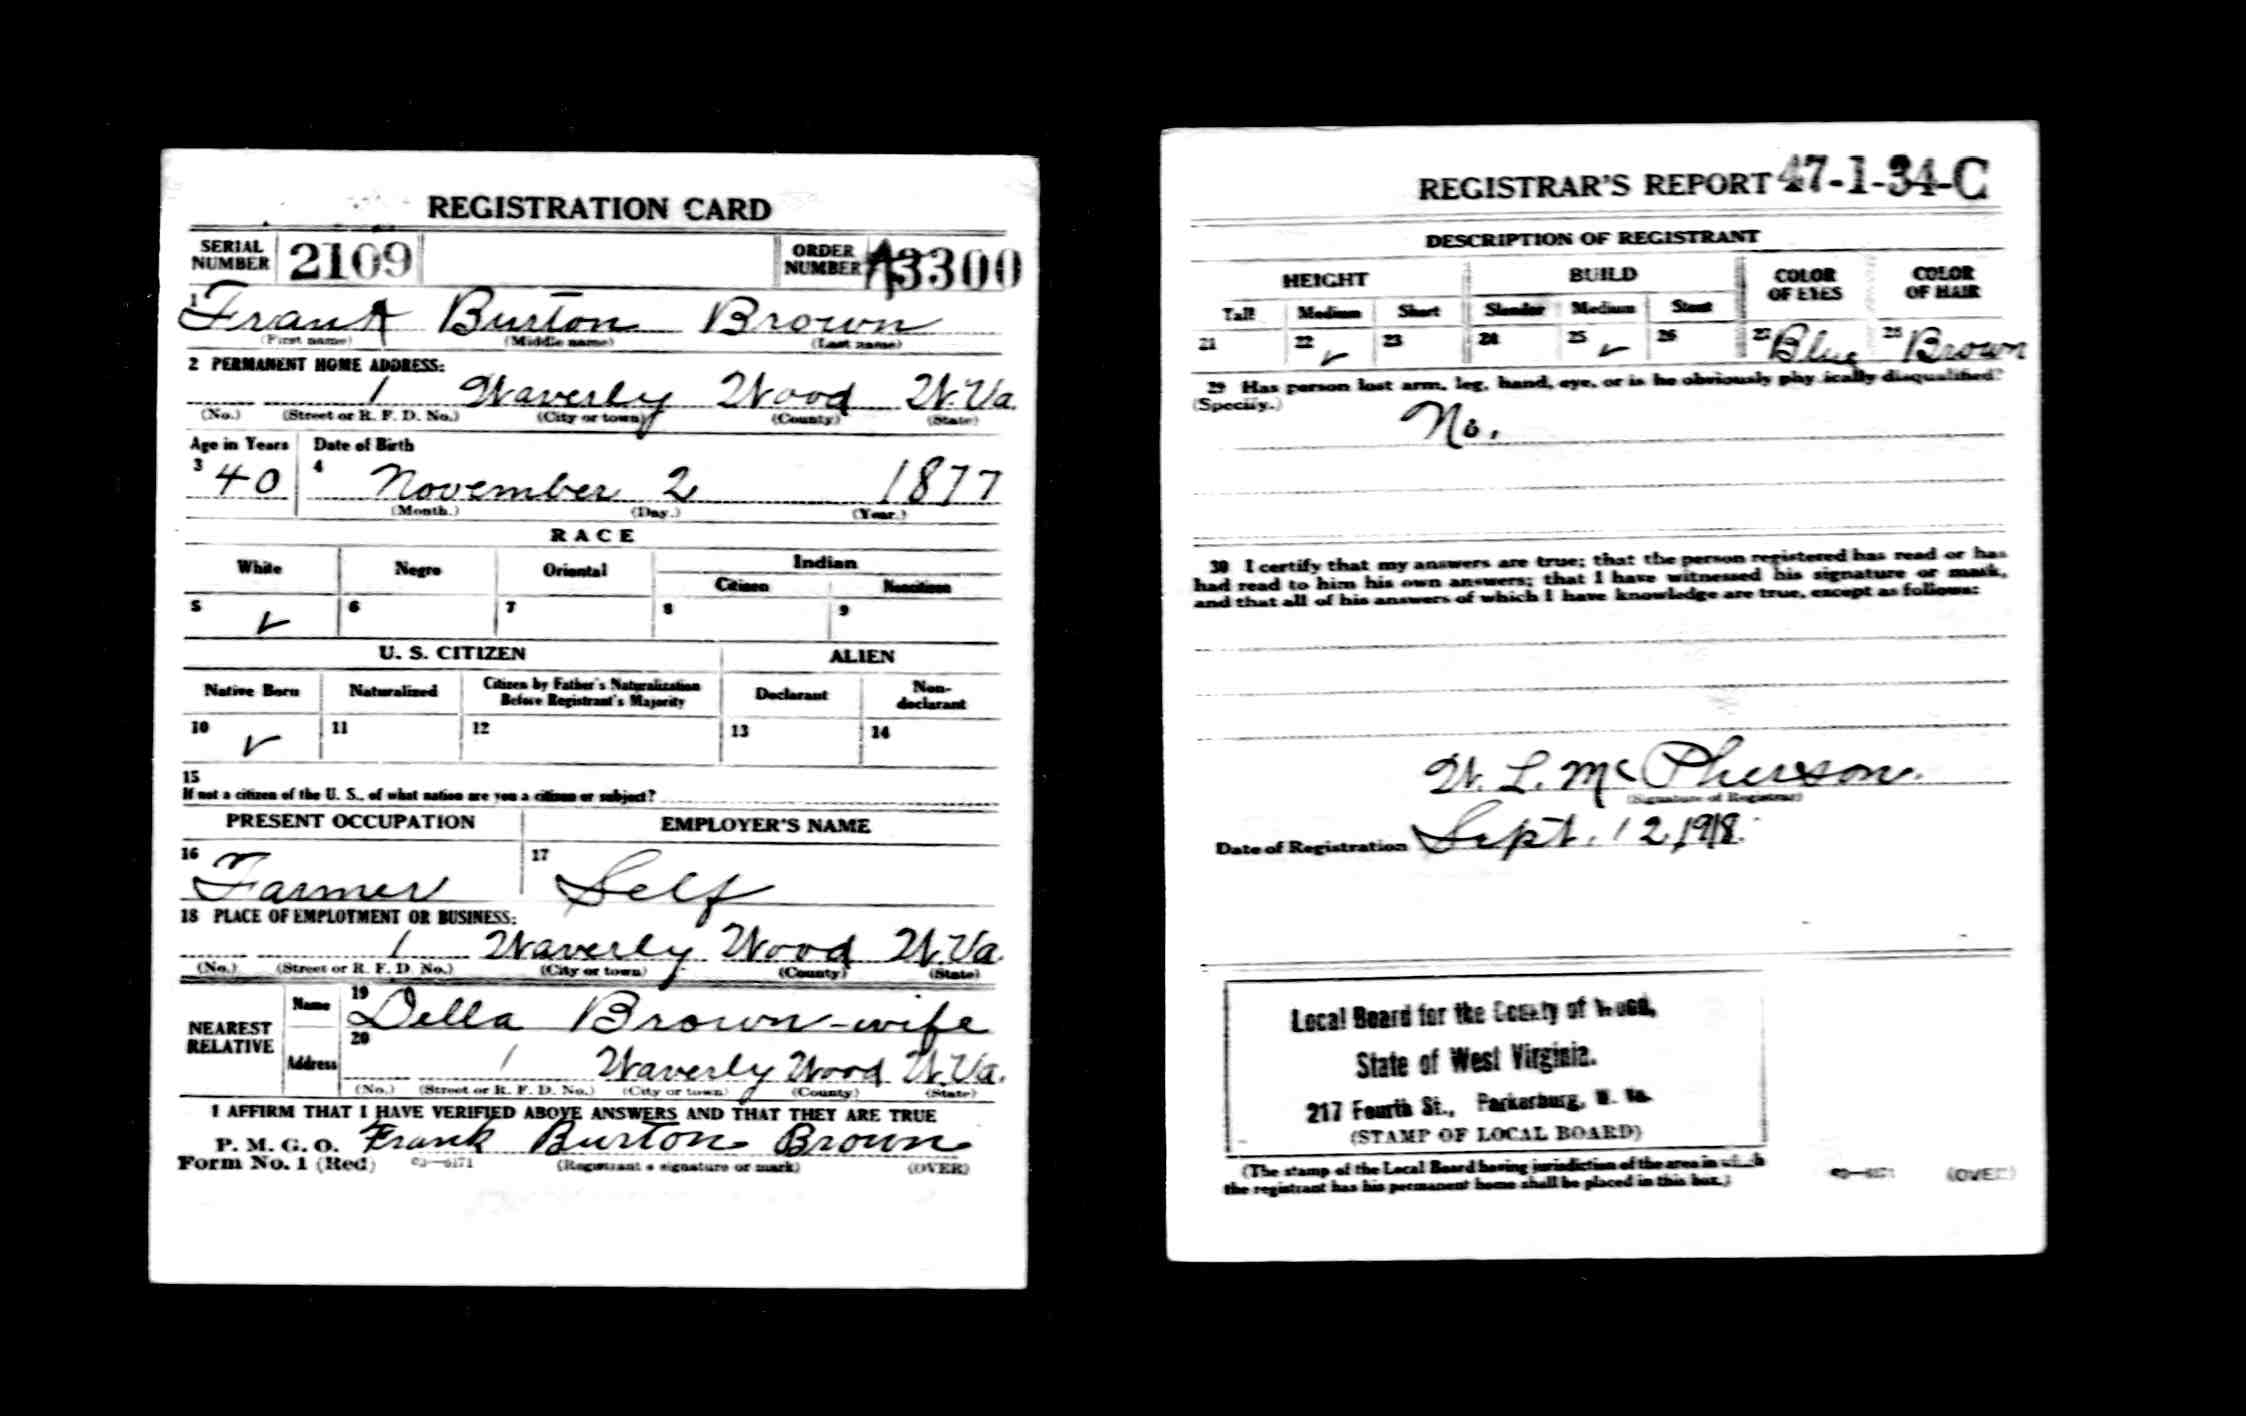 REGISTRATION CARD
SERIAL NUMBER 2109 ORDER NUMBER A3300
1 Frank Burton Brown
(First name) (Middle name) (Last name)
2 PERMANENT HOME ADDRESS:
1 Waverly Wood W.Va.
(No.) (Street or R. F. D. No.) (City or town) (County) (State)
Age in Years Date of Birth
3 40 4 November 2 1877
(Month.) (Day.) (Year.)
RACE
White Negro Oriental Indian
Citizen Noncitizen
5 ✓ 6 7 8 9
U. S. CITIZEN ALIEN
Native Born Naturalized Citizen by Father's Naturalization Before Registrant's Majority Declarant Non-declarant
10 ✓ 11 12 13 14
15
If not a citizen of the U. S., of what nation are you a citizen or subject?
PRESENT OCCUPATION EMPLOYER'S NAME
16 Farmer 17 Self
18 PLACE OF EMPLOYMENT OR BUSINESS:
1 Waverly Wood W.Va.
(No.) (Street or R. F. D. No.) (City or town) (County) (State)
NEAREST RELATIVE Name 19 Della Brown - wife
Address 20 1 Waverly Wood W.Va.
(No.) (Street or R. F. D. No.) (City or town) (County) (State)
I AFFIRM THAT I HAVE VERIFIED ABOVE ANSWERS AND THAT THEY ARE TRUE
P. M. G. O. Frank Burton Brown
Form No. 1 (Red) 03—6171 (Registrant's signature or mark) (OVER)
REGISTRAR'S REPORT 47-1-34-C
DESCRIPTION OF REGISTRANT
HEIGHT BUILD COLOR OF EYES COLOR OF HAIR
Tall Medium Short Slender Medium Stout
21 22 ✓ 23 24 25 ✓ 26 27 Blue 28 Brown
29 Has person lost arm, leg, hand, eye, or is he obviously physically disqualified?
(Specify.) No.
30 I certify that my answers are true; that the person registered has read or has
had read to him his own answers; that I have witnessed his signature or mark,
and that all of his answers of which I have knowledge are true, except as follows:
W. L. McPherson.
(Signature of Registrar)
Date of Registration Sept. 12, 1918.
Local Board for the County of Wood,
State of West Virginia.
217 Fourth St., Parkersburg, W. Va.
(STAMP OF LOCAL BOARD)
(The stamp of the Local Board having jurisdiction of the area in which
the registrant has his permanent home shall be placed in this box.)
03—6171 (OVER)